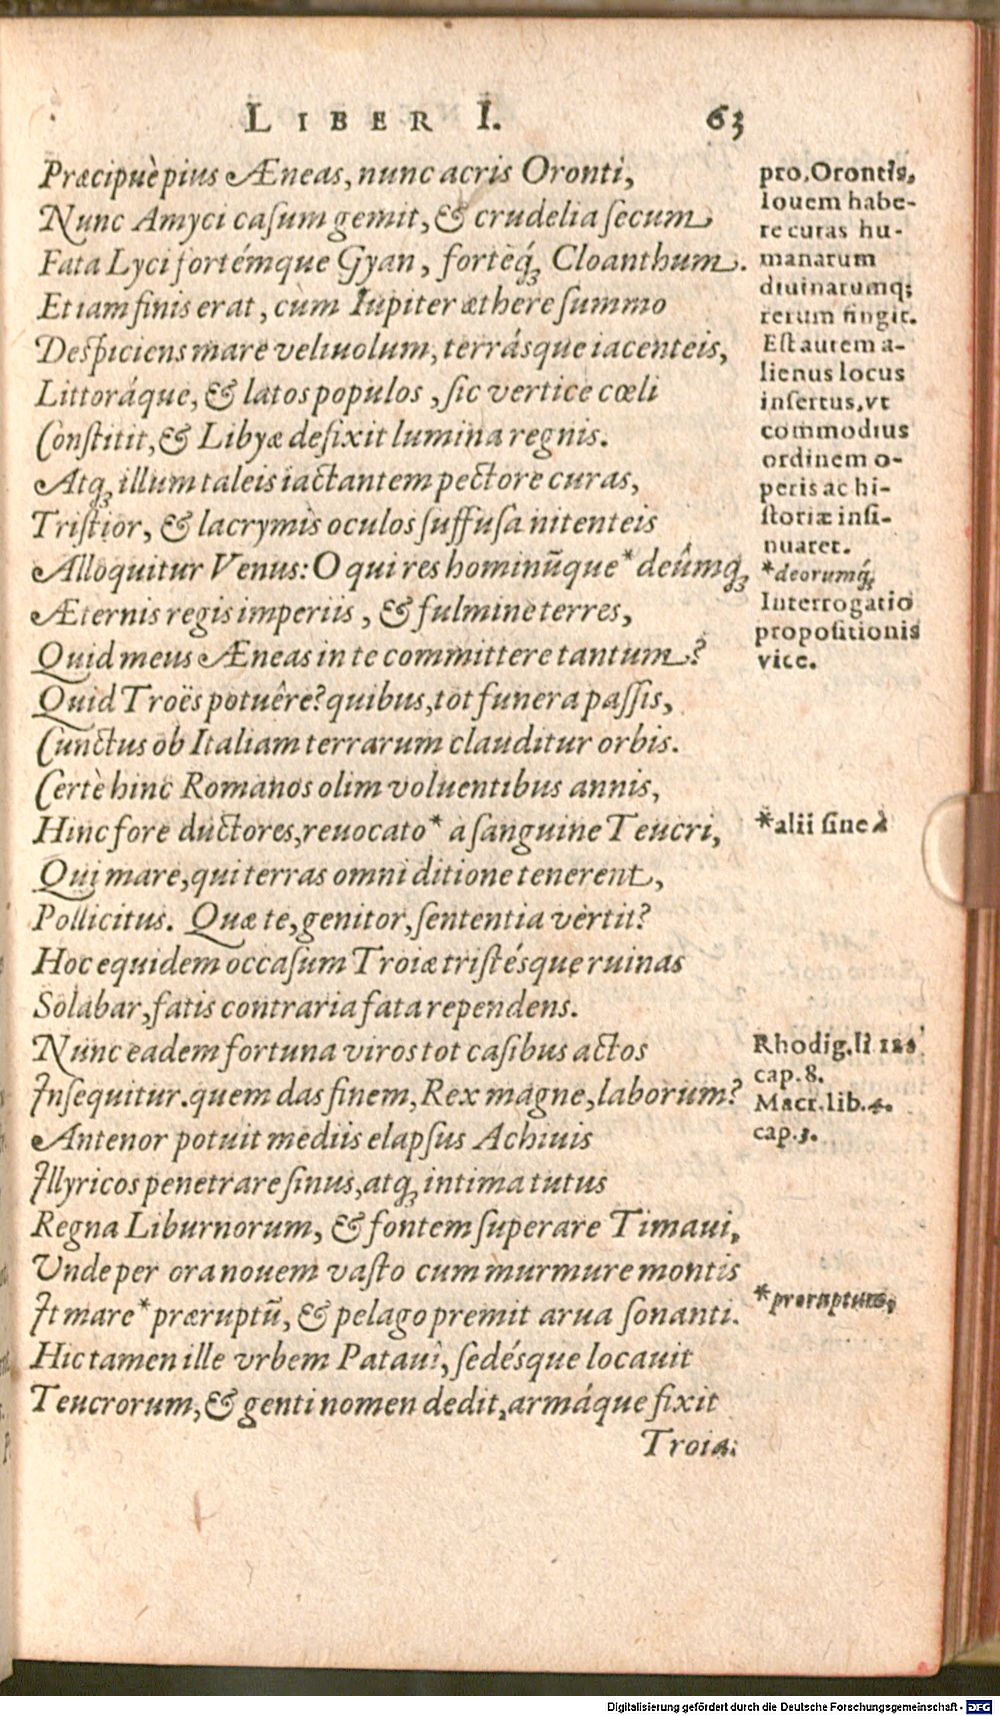 LIBER I. 63
Præcipuè pius Æneas, nunc acris Oronti,
Nunc Amyci caſum gemit, & crudelia ſecum
Fata Lyci fortémque Gyan, fortéq́ꝫ Cloanthum.
Et iam finis erat, cùm Iupiter æthere ſummo
Deſpiciens mare veliuolum, terrásque iacenteis,
Littoráque, & latos populos, ſic vertice cœli
Conſtitit, & Libyæ defixit lumina regnis.
Atqꝫ illum taleis iactantem pectore curas,
Triſtior, & lacrymis oculos ſuffuſa nitenteis
Alloquitur Venus: O qui res hominũque * deûmqꝫ
Æternis regis imperiis, & fulmine terres,
Quid meus Æneas in te committere tantum?
Quid Troës potuêre? quibus, tot funera paſſis,
Cunctus ob Italiam terrarum clauditur orbis.
Certè hinc Romanos olim voluentibus annis,
Hinc fore ductores, reuocato * a ſanguine Teucri,
Qui mare, qui terras omni ditione tenerent,
Pollicitus. Quæ te, genitor, ſententia vertit?
Hoc equidem occaſum Troiæ triſtésque ruinas
Solabar, fatis contraria fata rependens.
Nunc eadem fortuna viros tot caſibus actos
Inſequitur. quem das finem, Rex magne, laborum?
Antenor potuit mediis elapſus Achiuis
Illyricos penetrare ſinus, atqꝫ intima tutus
Regna Liburnorum, & fontem ſuperare Timaui,
Vnde per ora nouem vaſto cum murmure montis
It mare * præruptũ, & pelago premit arua ſonanti.
Hic tamen ille vrbem Pataui, ſedésque locauit
Teucrorum, & genti nomen dedit, armáque fixit
Troia:
pro, Orontis,
Iouem habe-
re curas hu-
manarum
diuinarumq;
rerum fingit.
Eſt autem a-
lienus locus
inſertus, vt
commodius
ordinem o-
peris ac hi-
ſtoriæ inſi-
nuaret.
*deorumq́ꝫ
Interrogatio
propoſitionis
vice.
*alii ſine à
Rhodig. li
cap. 8.
Macr. lib. 4.
cap. 3.
*proruptum,
Digitalisierung gefördert durch die Deutsche Forschungsgemeinschaft - DFG